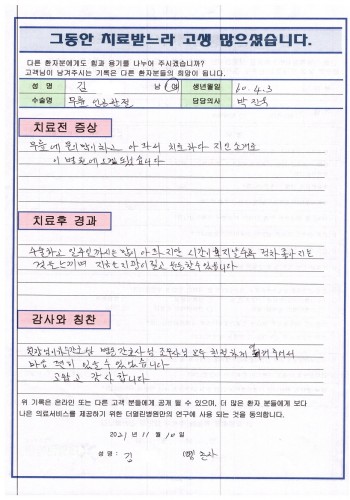 그동안 치료받느라 고생 많으셨습니다.
다른 환자분에게도 힘과 용기를 나누어 주시겠습니까?
고객님이 남겨주시는 기록은 다른 환자분들의 희망이 됩니다.
성 명 김 남 / 여 생년월일 60.4.3
수술명 무릎 인공관절 담당의사 박진욱
치료전 증상
무릎에 많이 아파서 치료하다 지인소개로
이 병원에 오게 되었습니다
치료후 경과
수술하고 일주일까지는 많이 아프지만 시간이 지날수록 점차 좋아지는
것을 느끼며 지금은 운동할 수 있습니다
감사와 칭찬
원장님 간호사님 조무사님 모두 친절하게 해주셔서
마음 편히 있을 수 있었습니다
고맙고 감사합니다
위 기록은 온라인 또는 다른 고객 분들에게 공개 될 수 있으며, 더 많은 환자 분들에게 보다
나은 의료서비스를 제공하기 위한 더열린병원만의 연구에 사용 되는 것을 동의합니다.
2021 년 11 월 10 일
성 명 : 김